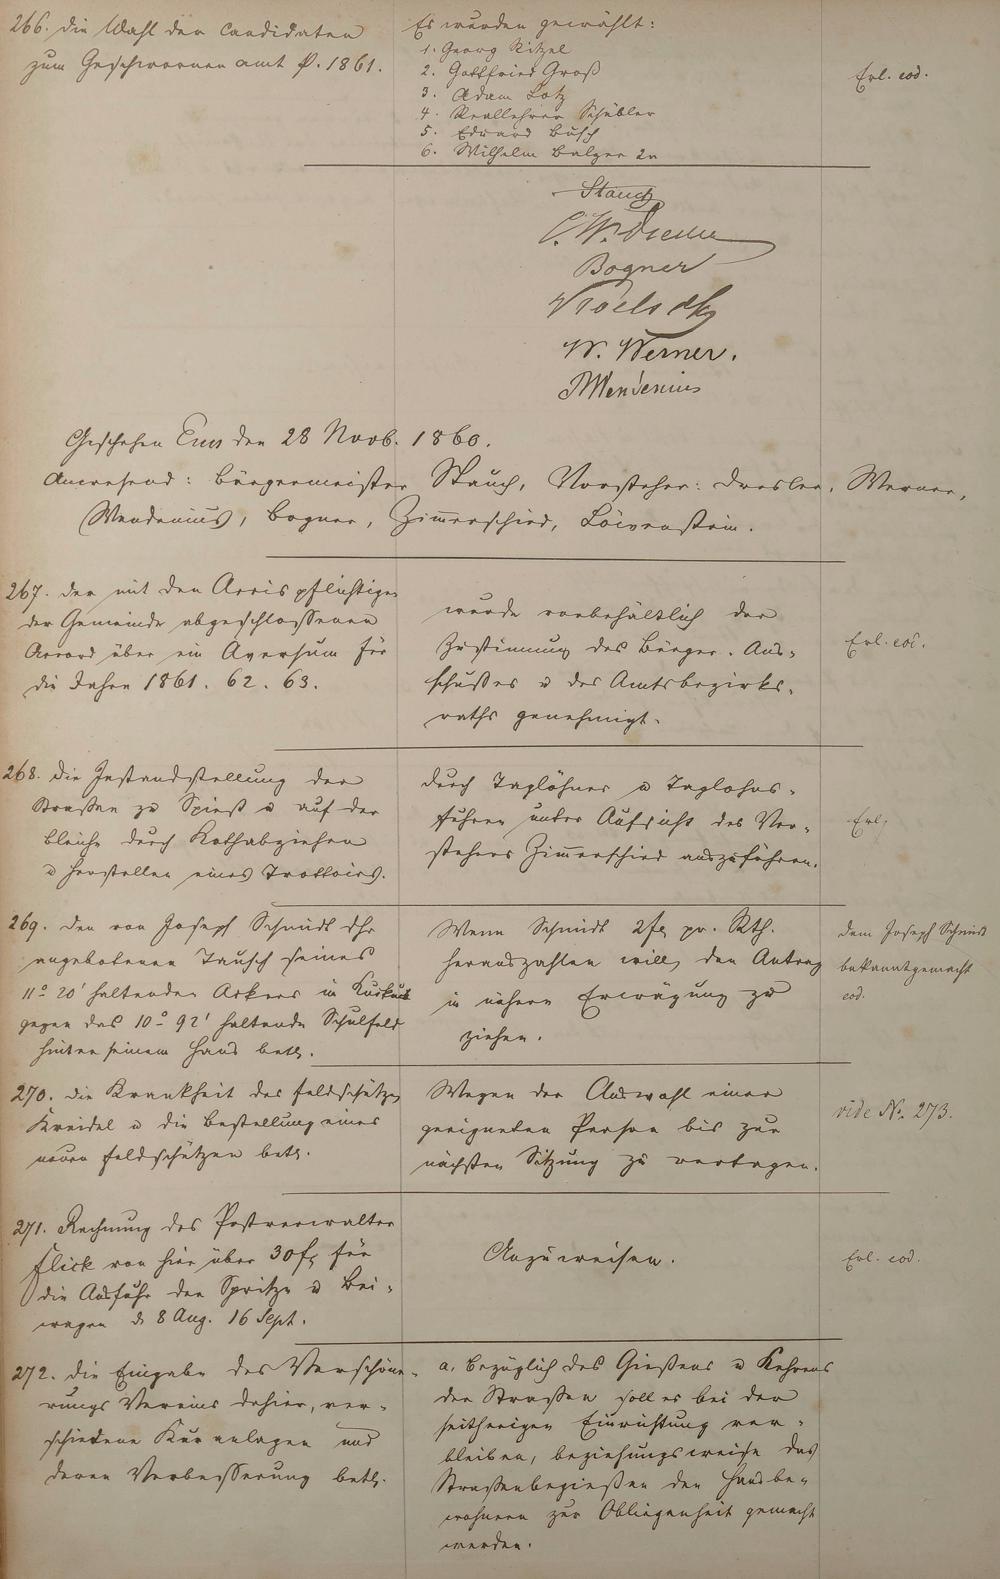 266. die Wahl der Candidaten
zum Geschwornen amt p. 1861.
Es wurden gewählt:
1. Georg Kitzel
2. Gottfried Groß
3. Adam Lotz
4. Reallehrer Schübler
5. Eduard Busch
6. Wilhelm Balzer 2r
Erl. eod.
Stauch
Bogner
W. Werner.
Wendenius
Geschehen Ems den 28 Novb. 1860.
Anwesend: Bürgermeister Stauch, Vorsteher: Dresler, Werner,
Wendenius, Bogner, Zimerschied, Löwenstein.
267. der mit den Accispflichtigen
der Gemeinde abgeschlossenen
Accord über ein Aversum für
die Jahre 1861. 62. 63.
wurde vorbehältlich der
Zustimung des Bürger-Aus-
schußes u des Amtsbezirks-
raths genehmigt.
Erl. eod.
268. die Instandstellung der
Straßen zu Spieß u auf der
Bleiche durch Kothabziehen
u Herstellen eines Trottoirs.
durch Taglöhner u Taglohns-
fuhren unter Aufsicht des Vor-
stehers Zimerschied auszuführen.
Erl.
269. den von Joseph Schmidt dhr
angebotenen Tausch seines
11° 20' haltenden Ackers in
gegen das 10° 92' haltende Schulfeld
hinter seinem Haus betr.
Wenn Schmidt 2 fl pr. Rth.
herauszahlen will, den Antrag
in nähere Erwägung zu
ziehen.
dem Joseph Schmidt
bekanntgemacht
eod.
270. die Krankheit des Feldschützen
Kreidel u die Bestellung eines
neuen Feldschützen betr.
Wegen der Auswahl einer
geeigneten Person bis zur
nächsten Sitzung zu vertagen.
vide No. 273.
271. Rechnung des Postverwalter
Flick von hier über 30 fl für
die Ausfuhr der Spritze u Bei-
wagen d 8 Aug. 16 Sept.
Anzuweisen.
Erl. eod.
272. die Eingabe des Verschöne-
rungs Vereins dahier, ver-
schiedene Kuranlagen und
deren Verbesserung betr.
a. bezüglich des Gießens u Kehrens
der Straßen soll es bei der
seitherigen Einrichtung ver-
bleiben, beziehungsweise das
Straßenbegießen den Hausbe-
wohnern zur Obliegenheit gemacht
werden.